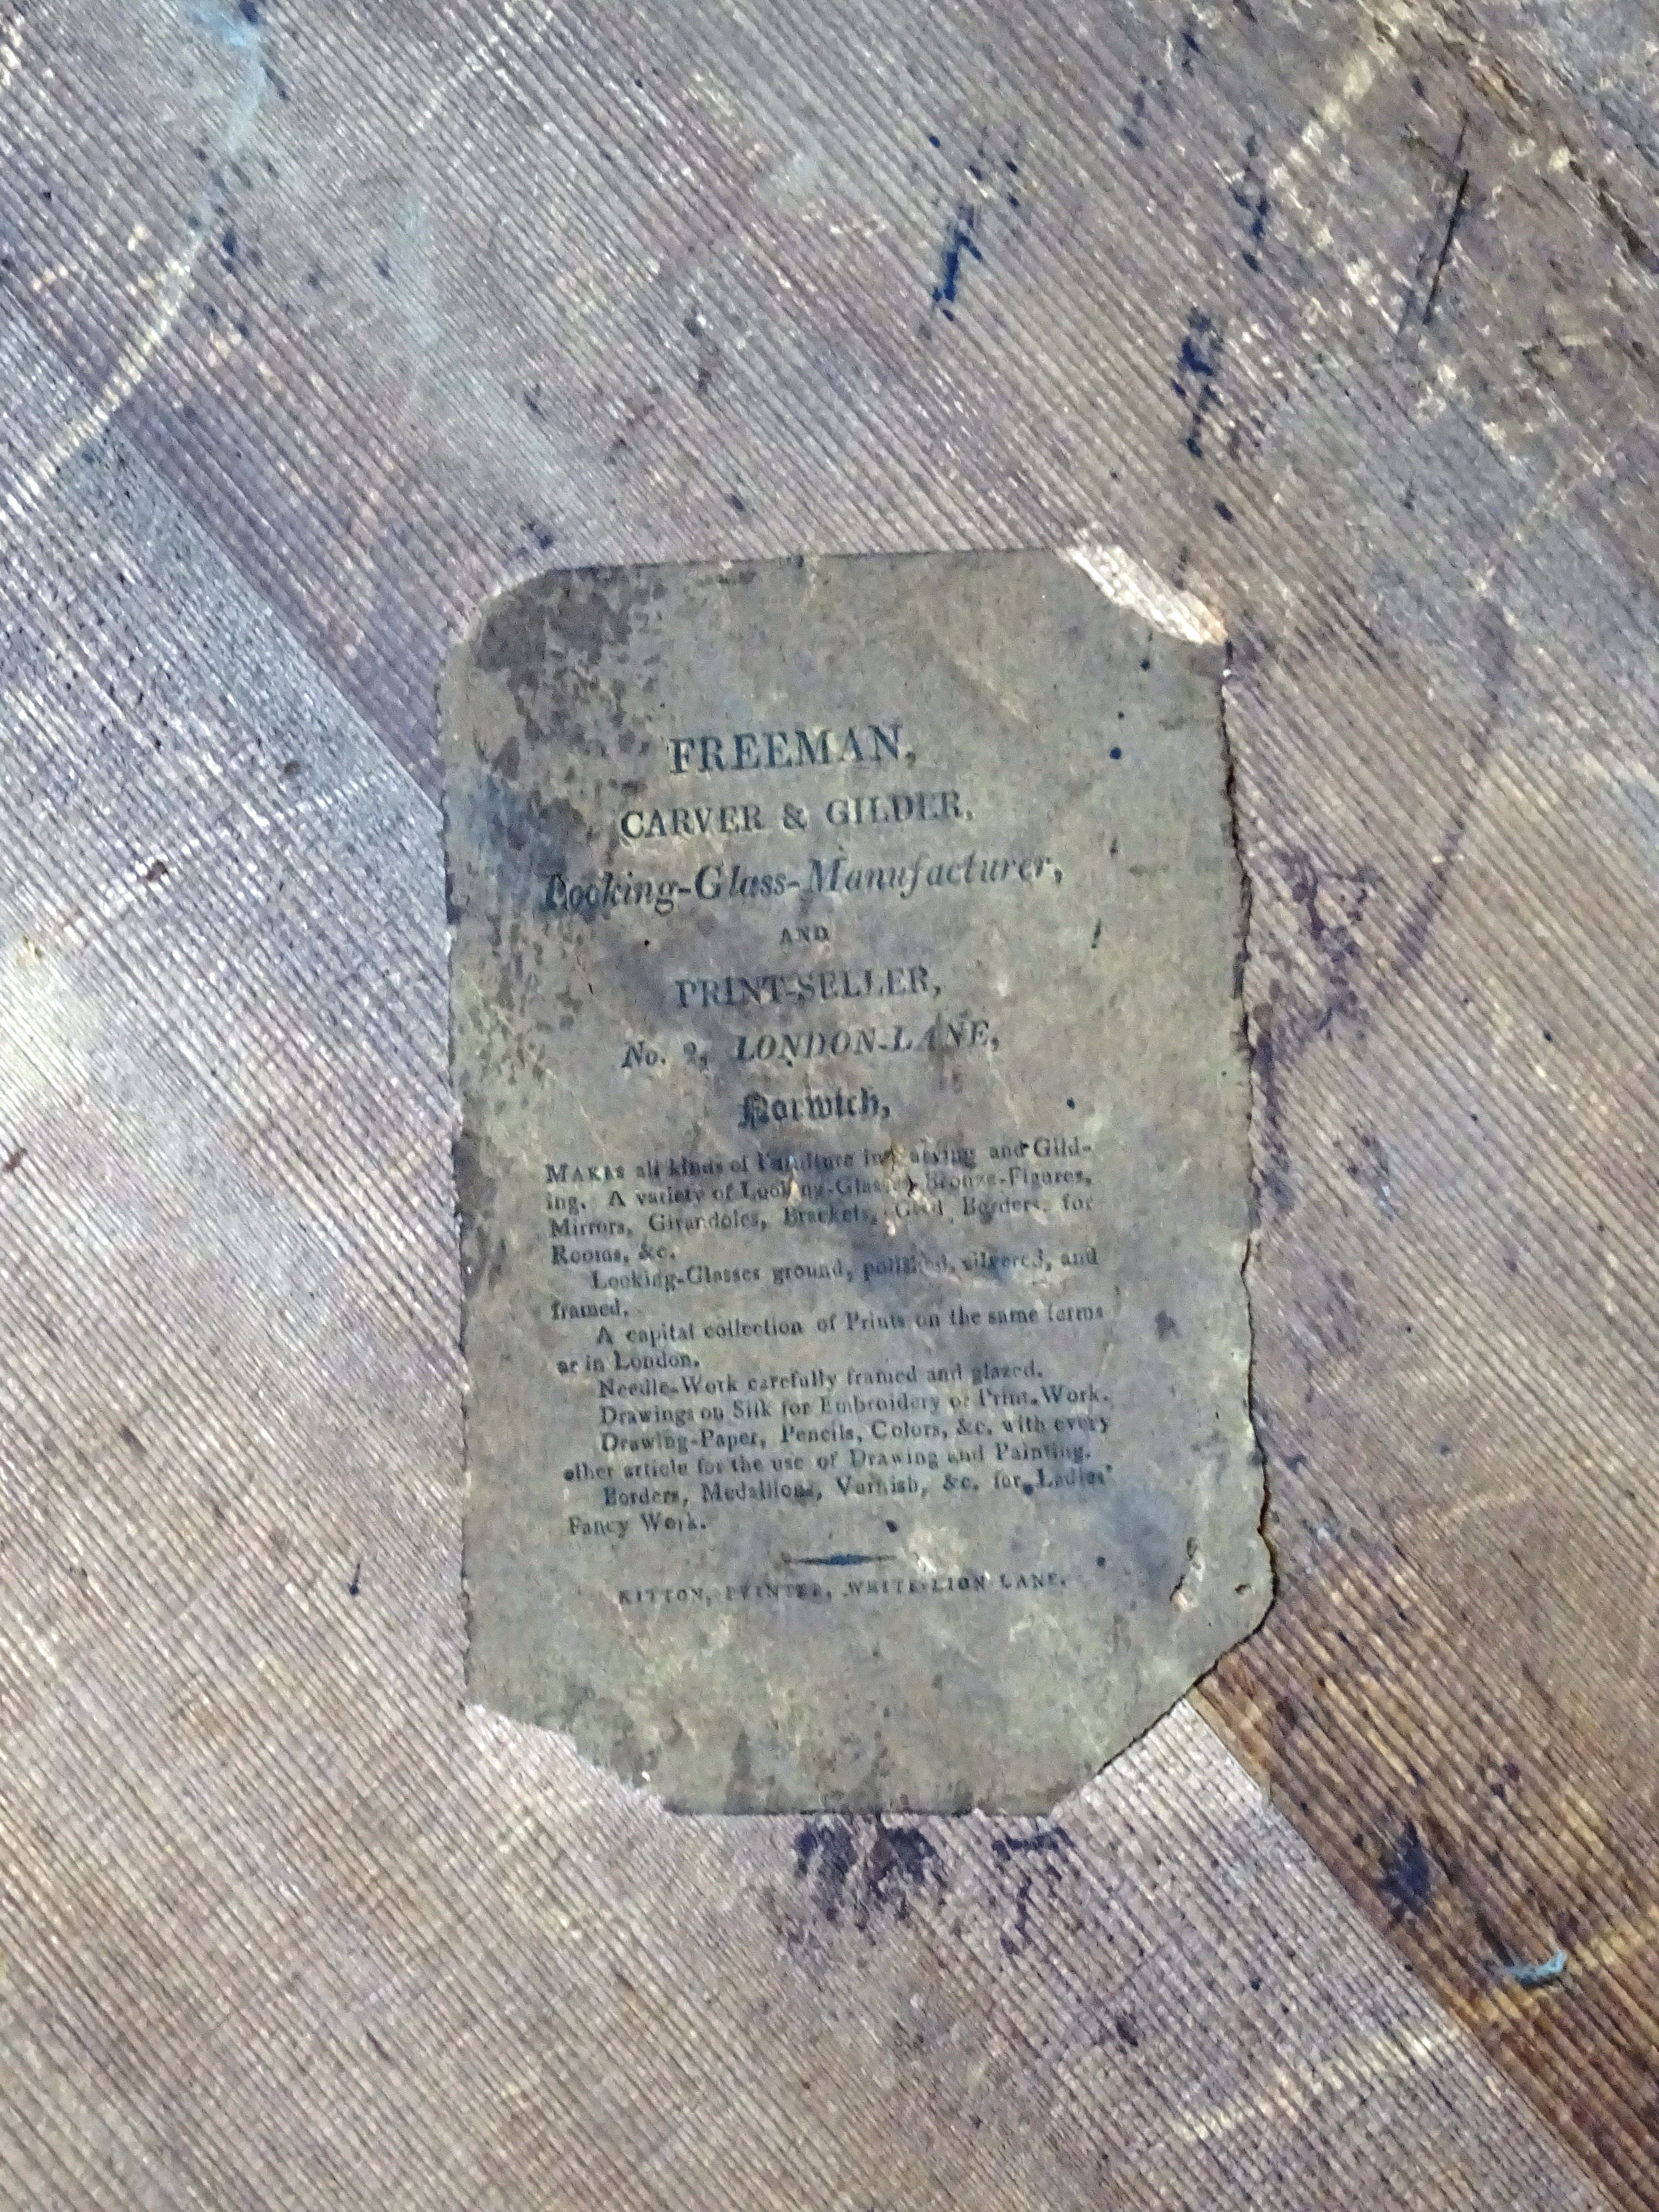 FREEMAN,
CARVER & GILDER,
Looking-Glass-Manufacturer,
AND
PRINT-SELLER,
No. 2, LONDON-LANE,
Norwich,
MAKES all kinds of Furniture in Carving and Gild-
ing. A variety of Looking-Glasses, Bronze-Figures,
Mirrors, Girandoles, Brackets, Gold Borders for
Rooms, &c.
Looking-Glasses ground, polished, silvered, and
framed.
A capital collection of Prints on the same terms
as in London.
Needle-Work carefully framed and glazed.
Drawings on Silk for Embroidery or Print-Work.
Drawing-Paper, Pencils, Colors, &c. with every
other article for the use of Drawing and Painting.
Borders, Medallions, Varnish, &c. for Ladies'
Fancy Work.
KITTON, PRINTER, WHITE-LION LANE.